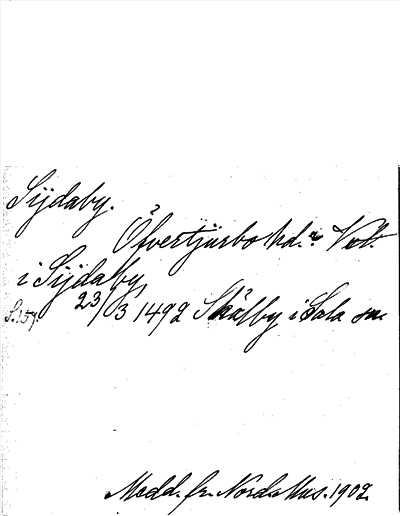 Sijdaby.
Öfvertjurbo hd. Vtl.
i Sijdaby,
S.157. 23/3 1492 Skälby i Sala sn
Medd. fr. Nord. Mus. 1902.